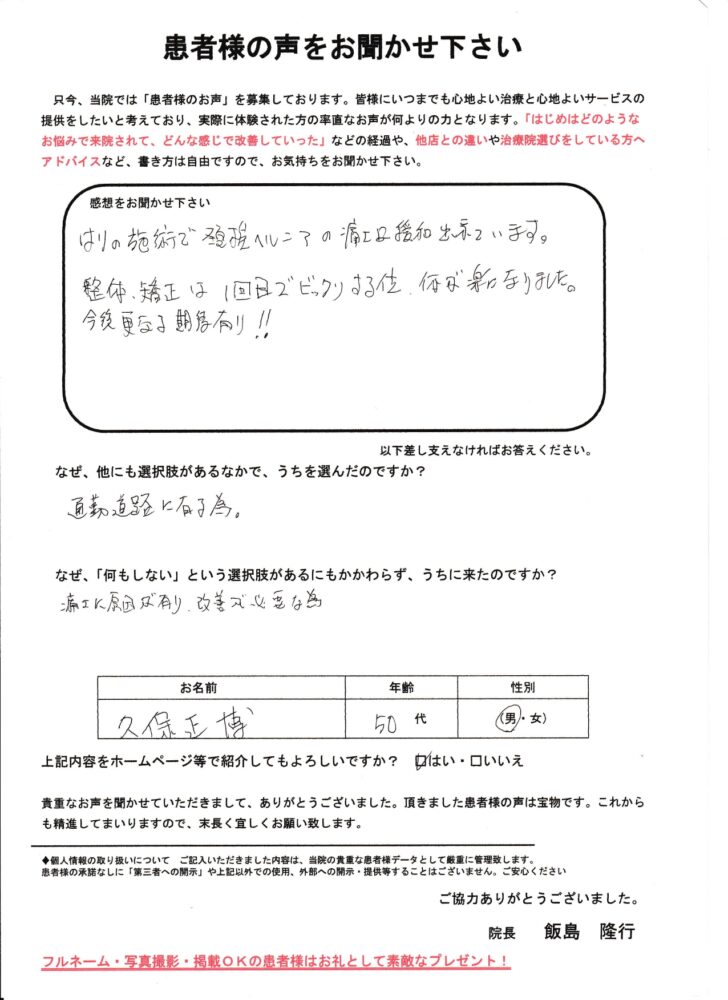 患者様の声をお聞かせ下さい
只今、当院では「患者様のお声」を募集しております。皆様にいつまでも心地よい治療と心地よいサービスの
提供をしたいと考えており、実際に体験された方の率直なお声が何よりの力となります。「はじめはどのような
お悩みで来院されて、どんな感じで改善していった」などの経過や、他店との違いや治療院選びをしている方へ
アドバイスなど、書き方は自由ですので、お気持ちをお聞かせ下さい。
感想をお聞かせ下さい
はりの施術で頸椎ヘルニアの痛みは緩和出来ています。
整体、矯正は1回目でビックリする位、体が楽になりました。
今後更なる期待有り!!
以下差し支えなければお答えください。
なぜ、他にも選択肢があるなかで、うちを選んだのですか？
通勤道路に有る為。
なぜ、「何もしない」という選択肢があるにもかかわらず、うちに来たのですか？
痛みに原因が有り、改善が必要な為
お名前 年齢 性別
久保正博 50 代 (男・女)
上記内容をホームページ等で紹介してもよろしいですか？ ☑はい・□いいえ
貴重なお声を聞かせていただきまして、ありがとうございました。頂きました患者様の声は宝物です。これから
も精進してまいりますので、末長く宜しくお願い致します。
◆個人情報の取り扱いについて ご記入いただきました内容は、当院の貴重な患者様データとして厳重に管理致します。
患者様の承諾なしに「第三者への開示」や上記以外での使用、外部への開示・提供等することはございません。ご安心ください
ご協力ありがとうございました。
院長 飯島 隆行
フルネーム・写真撮影・掲載ＯＫの患者様はお礼として素敵なプレゼント！